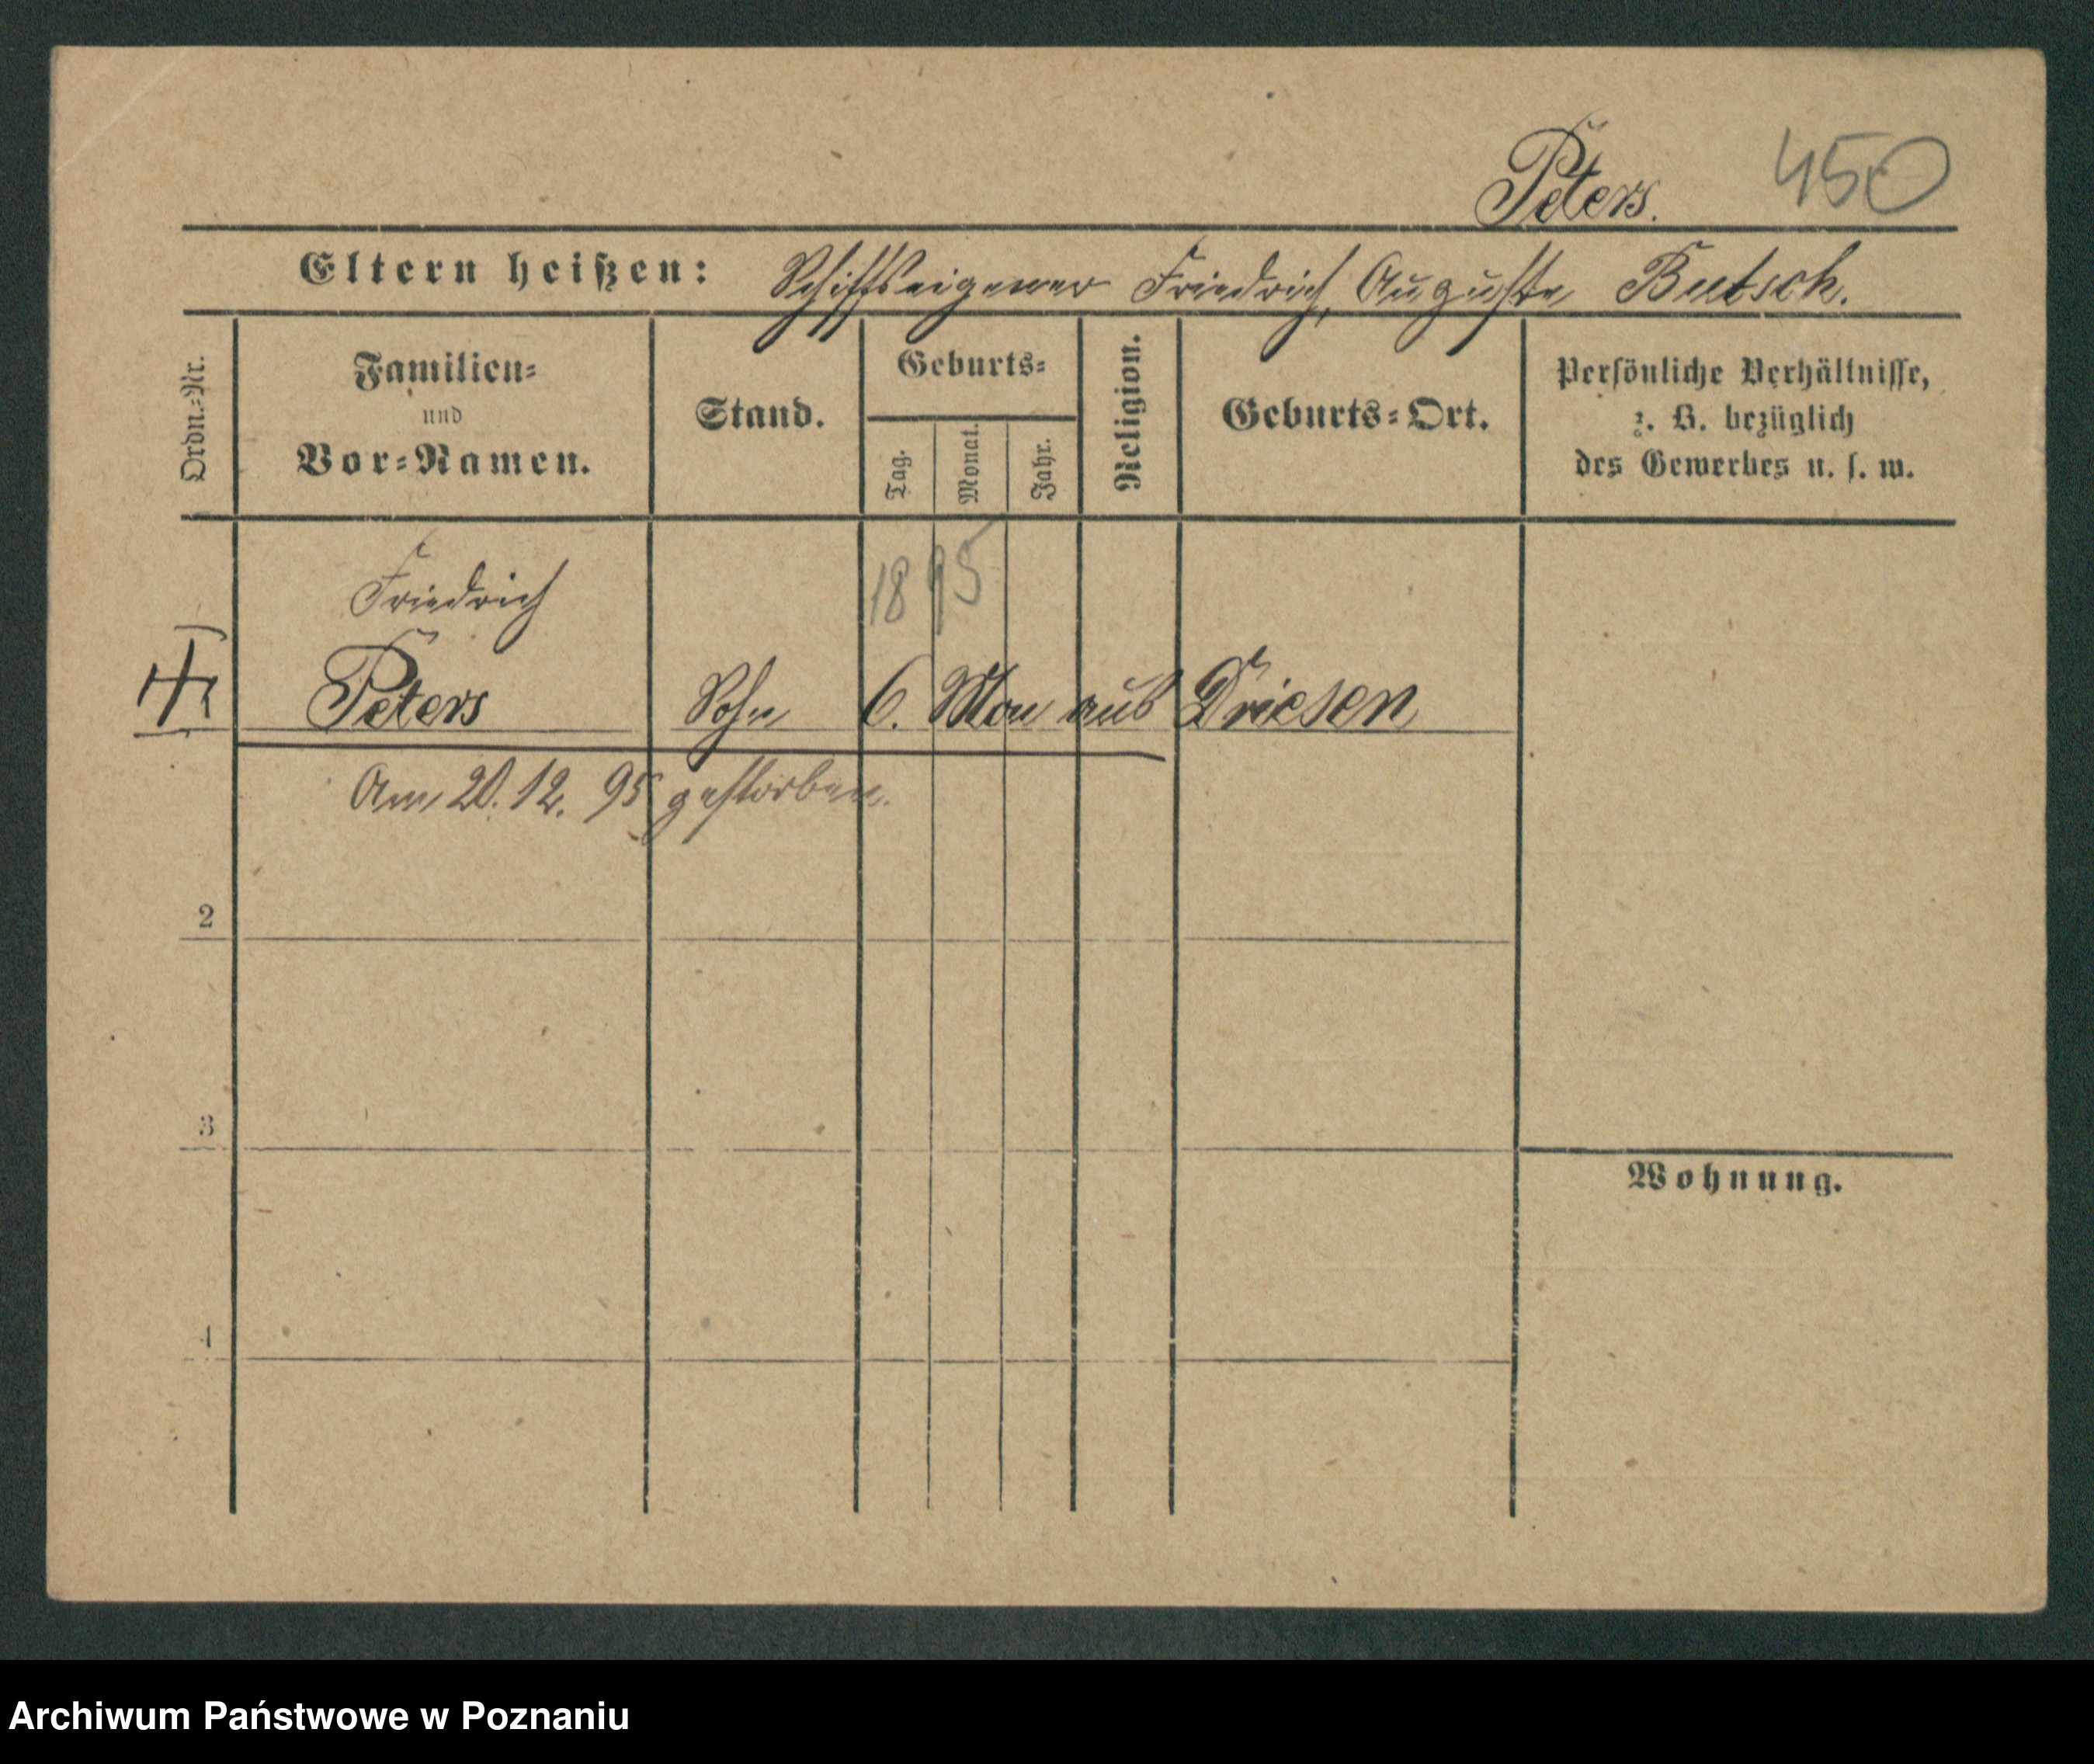 Peters. 450
Eltern heißen: Schiffseigener Friedrich, Auguste Butsch.
Ordn.=Nr.
Familien=
und
Vor=Namen.
Stand.
Geburts=
Tag.
Monat.
Jahr.
Religion.
Geburts=Ort.
Persönliche Verhältnisse,
z. B. bezüglich
des Gewerbes u. s. w.
Friedrich 1895
Peters Sohn 6. Mon aus Driesen
Am 20. 12. 95 gestorben.
2
3
Wohnung.
4
Archiwum Państwowe w Poznaniu